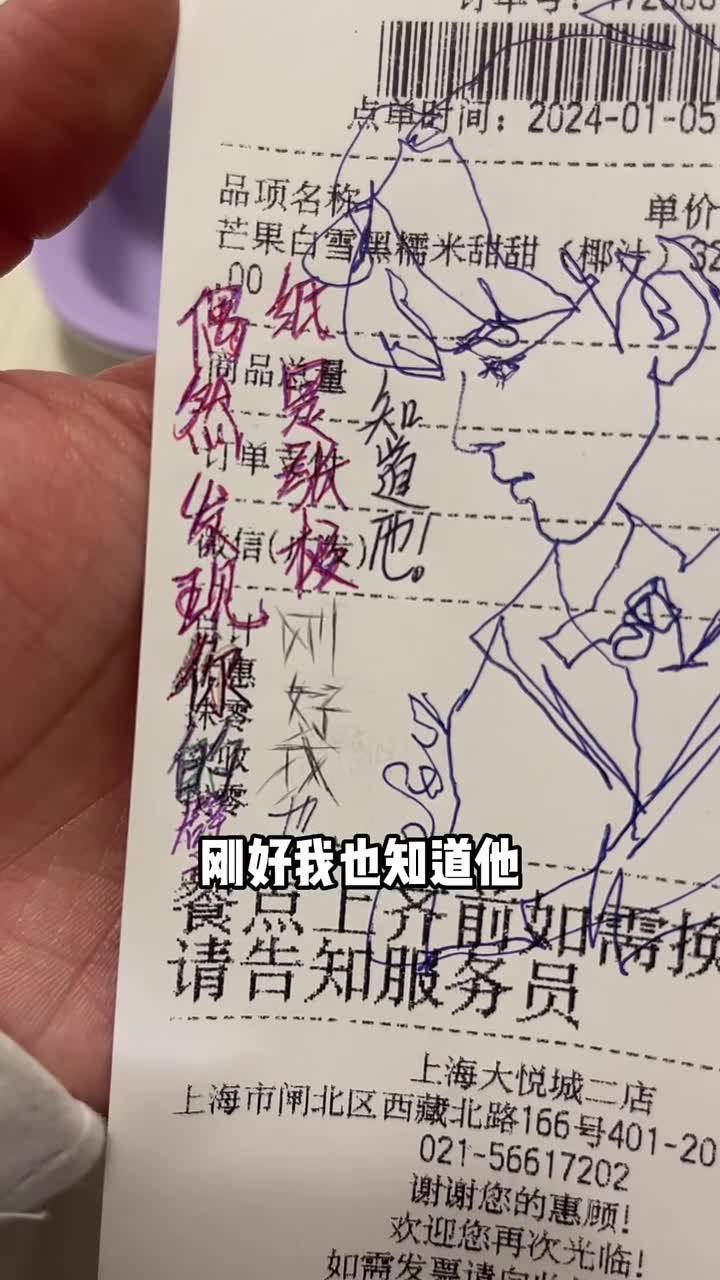 点单时间：2024-01-05
品项名称
单价
芒果白雪黑糯米甜甜（椰汁）32
.00
商品总量
订单
微信(
餐点上齐前如需换
请告知服务员
上海大悦城二店
上海市闸北区西藏北路166号401-20
021-56617202
谢谢您的惠顾！
欢迎您再次光临！
如需发票请向
偶然发现你的
纸是纸极
刚好我也
知道他！
刚好我也知道他